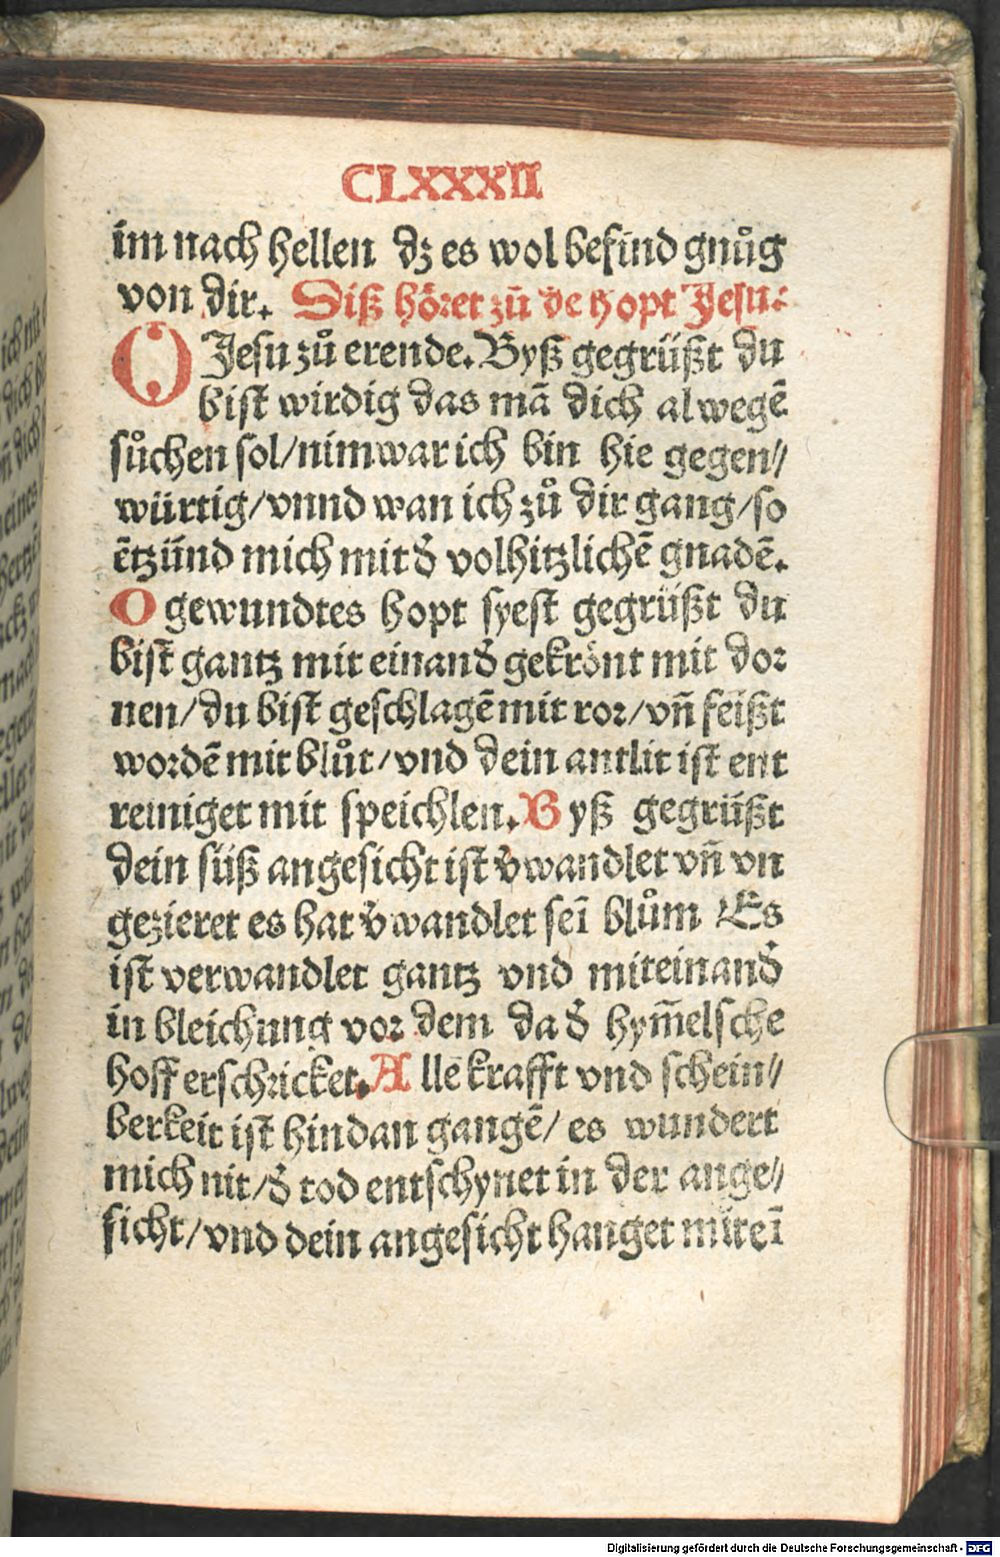 CLXXXII
im nach hellen dz es wol befind gnůg
von dir. Diß höret zů dē hopt Jesu:
O Jesu zů erende. Byß gegrüßt du
bist wirdig das mā dich alwegē
sůchen sol/nimwar ich bin hie gegen⸗
würtig/vnnd wan ich zů dir gang/so
ētzünd mich mit d̕ volhitzlichē gnadē.
O gewundtes hopt syest gegrüßt du
bist gantz mit einand̕ gekrönt mit dor
nen/du bist geschlagē mit ror/vn̄ feißt
wordē mit blůt/vnd dein antlit ist ent
reiniget mit speichlen. Byß gegrüßt
dein süß angesicht ist v̕wandlet vn̄ vn
gezieret es hat v̕wandlet seī blům Es
ist verwandlet gantz vnd miteinand̕
in bleichung vor dem da d̕ hym̄elsche
hoff erschricket. Alle krafft vnd schein⸗
berkeit ist hindan gangē/ es wundert
mich nit/d̕ tod entschynet in der ange⸗
sicht/vnd dein angesicht hanget mit eī
Digitalisierung gefördert durch die Deutsche Forschungsgemeinschaft - DFG